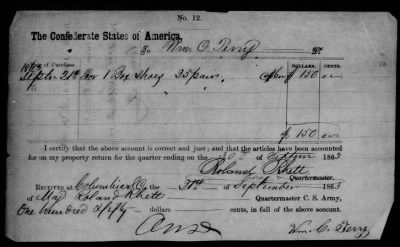 No. 12.
The Confederate States of America,
To Wm. C. Terry Dr.
Date of Purchase. DOLLARS. CENTS.
Septr 21st For 1 Box Shoes 25 pairs $ 150 00
$ 150 00
I certify that the above account is correct and just; and that the articles have been accounted
for on my property return for the quarter ending on the 30 of Septem 1863
Roland Rhett
Quartermaster.
RECEIVED at Columbia S.C. the 30th of September 1863
of Maj Roland Rhett Quartermaster C. S. Army,
One hundred & fifty dollars cents, in full of the above account.
Wm. C. Terry